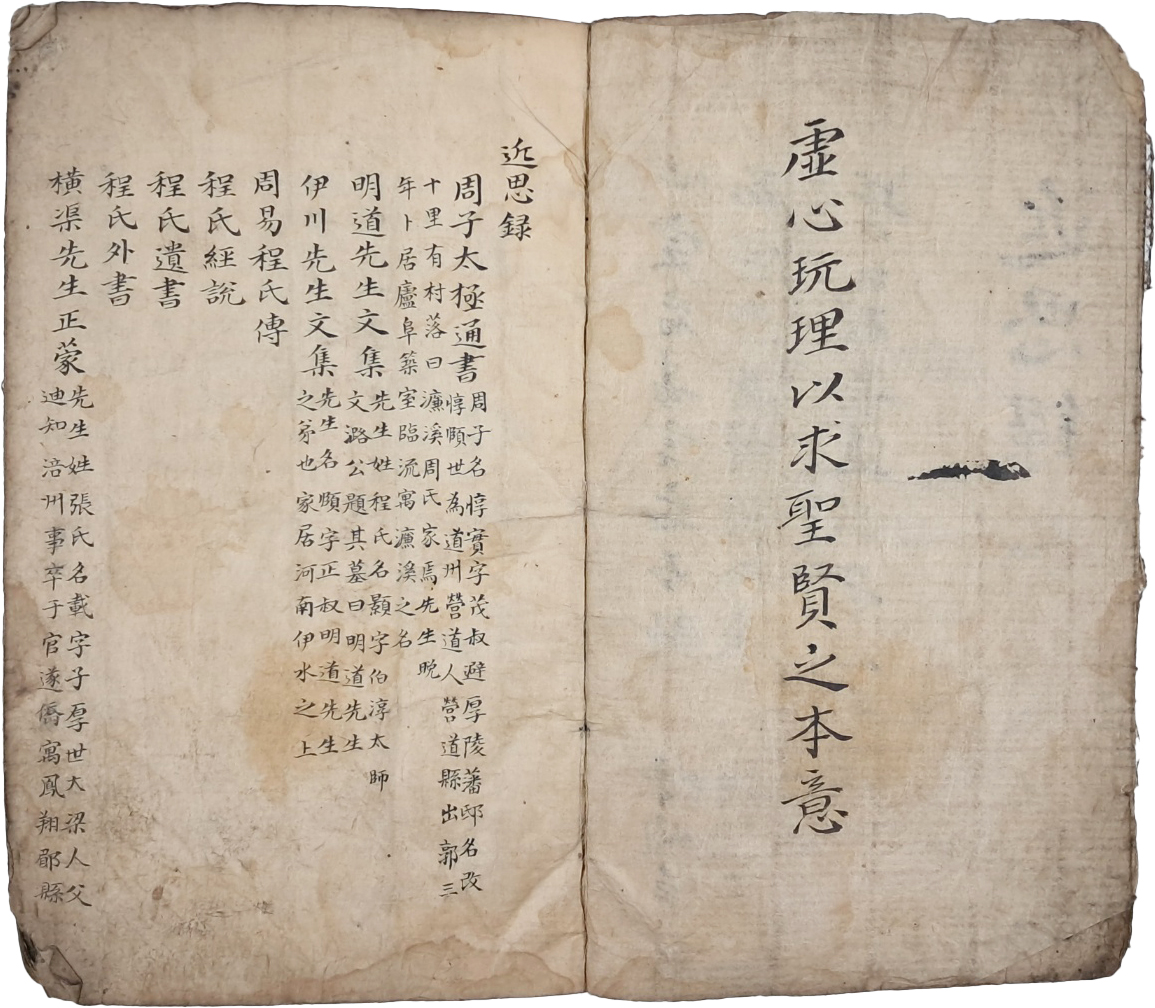 虛心玩理以求聖賢之本意
近思録
周子太極通書
周子名惇實字茂叔避厚陵藩邸名改
惇頤世為道州營道人營道縣出郭三
十里有村落曰濂溪周氏家焉先生晩
年卜居廬阜築室臨流寓濂溪之名
明道先生文集
先生姓程氏名顥字伯淳太師
文潞公題其墓曰明道先生
伊川先生文集
先生名頤字正叔明道先生
之弟也家居河南伊水之上
周易程氏傳
程氏經說
程氏遺書
程氏外書
橫渠先生正蒙
先生姓張氏名載字子厚世大梁人父
迪知涪州事卒于官遂僑寓鳳翔郿縣